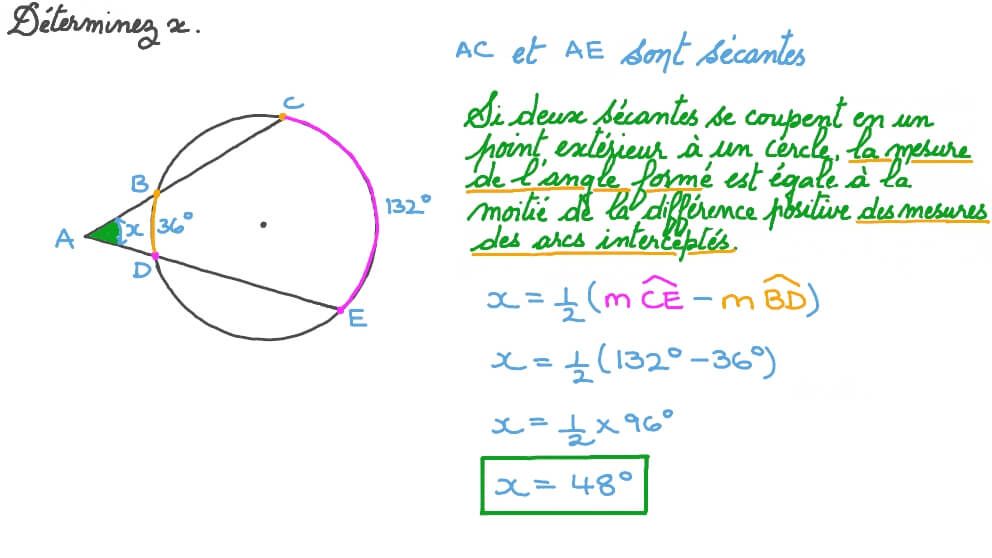 Déterminez x.
AC et AE sont sécantes
Si deux sécantes se coupent en un
point extérieur à un cercle, la mesure
de l'angle formé est égale à la
moitié de la différence positive des mesures
des arcs interceptés.
C
B
132°
A
x
36°
D
E
x = 1/2 (m CE − m BD)
x = 1/2 (132° − 36°)
x = 1/2 × 96°
x = 48°